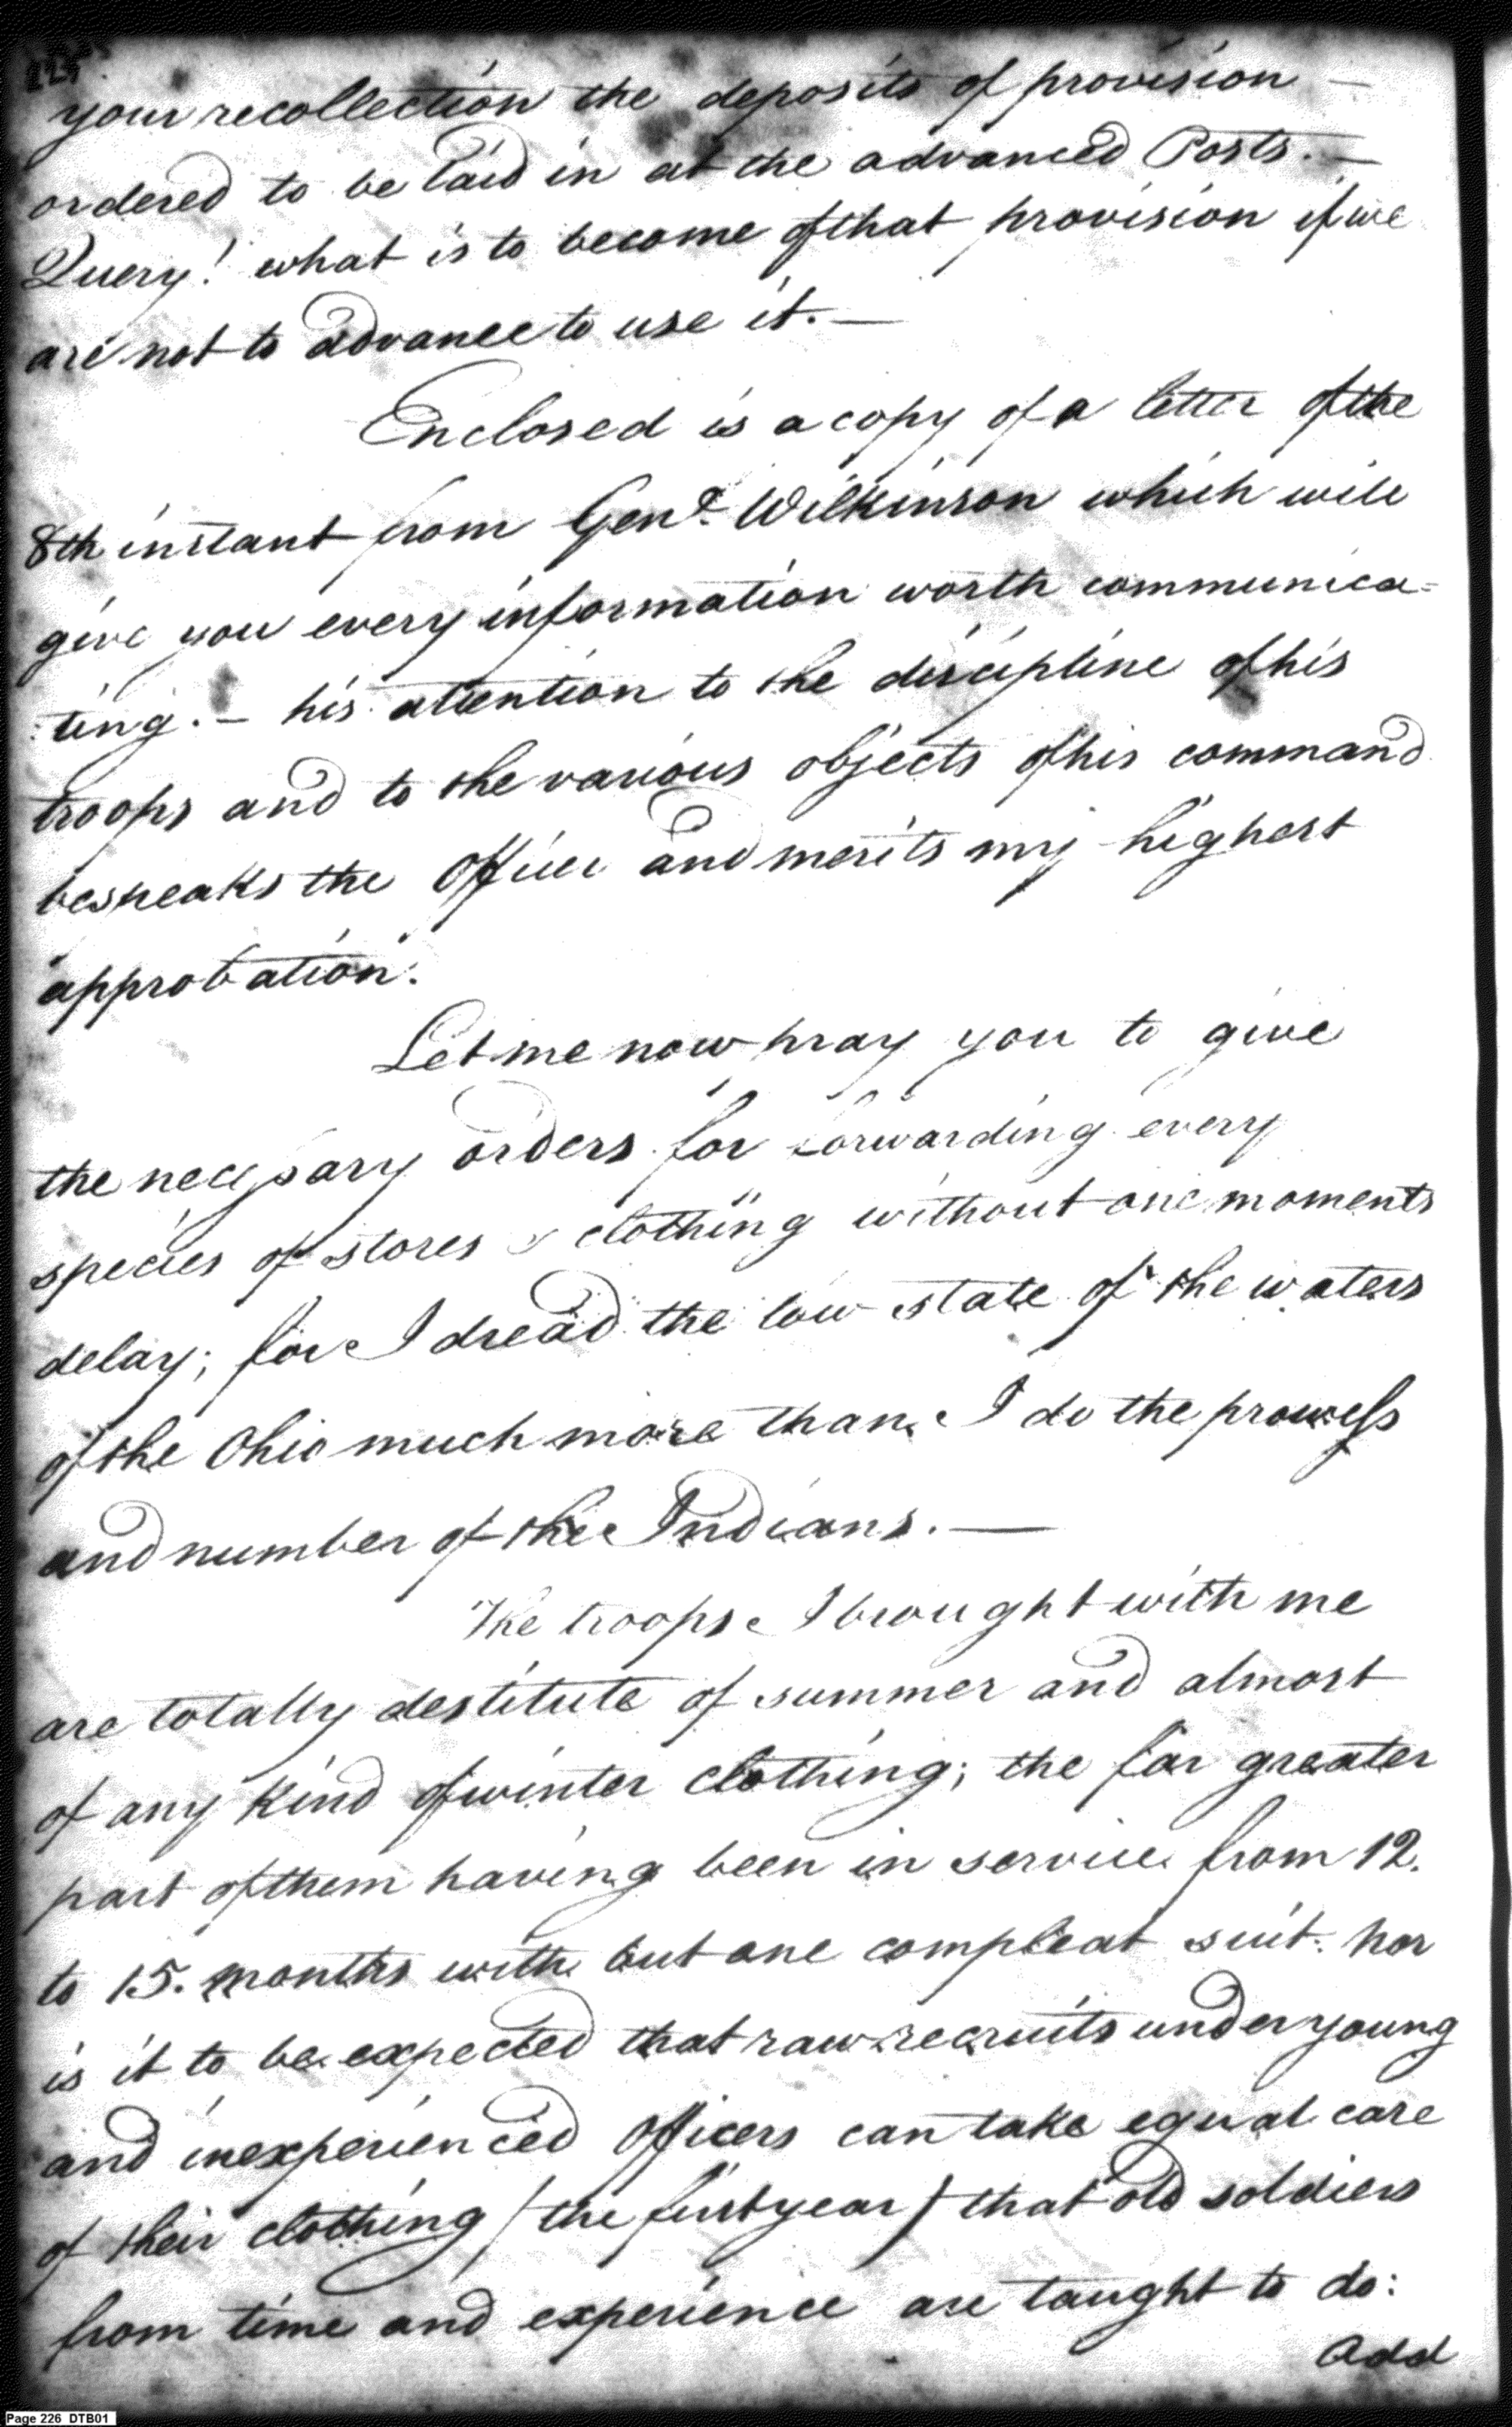 225
your recollection the deposits of provision —
ordered to be laid in at the advanced Posts. —
Query! what is to become of that provision if we
are not to advance to use it. —
Enclosed is a copy of a letter of the
8th instant from Genl. Wilkinson which will
give you every information worth communica=
:ting. — his attention to the discipline of his
troops and to the various objects of his command
bespeaks the Officer and merits my highest
approbation.
Let me now pray you to give
the necessary orders for forwarding every
species of stores & clothing without one moments
delay; for I dread the low state of the waters
of the Ohio much more than I do the prowess
and number of the Indians. —
The troops I brought with me
are totally destitute of summer and almost
of any kind of winter clothing; the far greater
part of them having been in service from 12.
to 15. months with but one compleat suit. nor
is it to be expected that raw recruits under young
and inexperienced Officers can take equal care
of their clothing (the first year) that old soldiers
from time and experience are taught to do:
Add
Page 226 DTB01